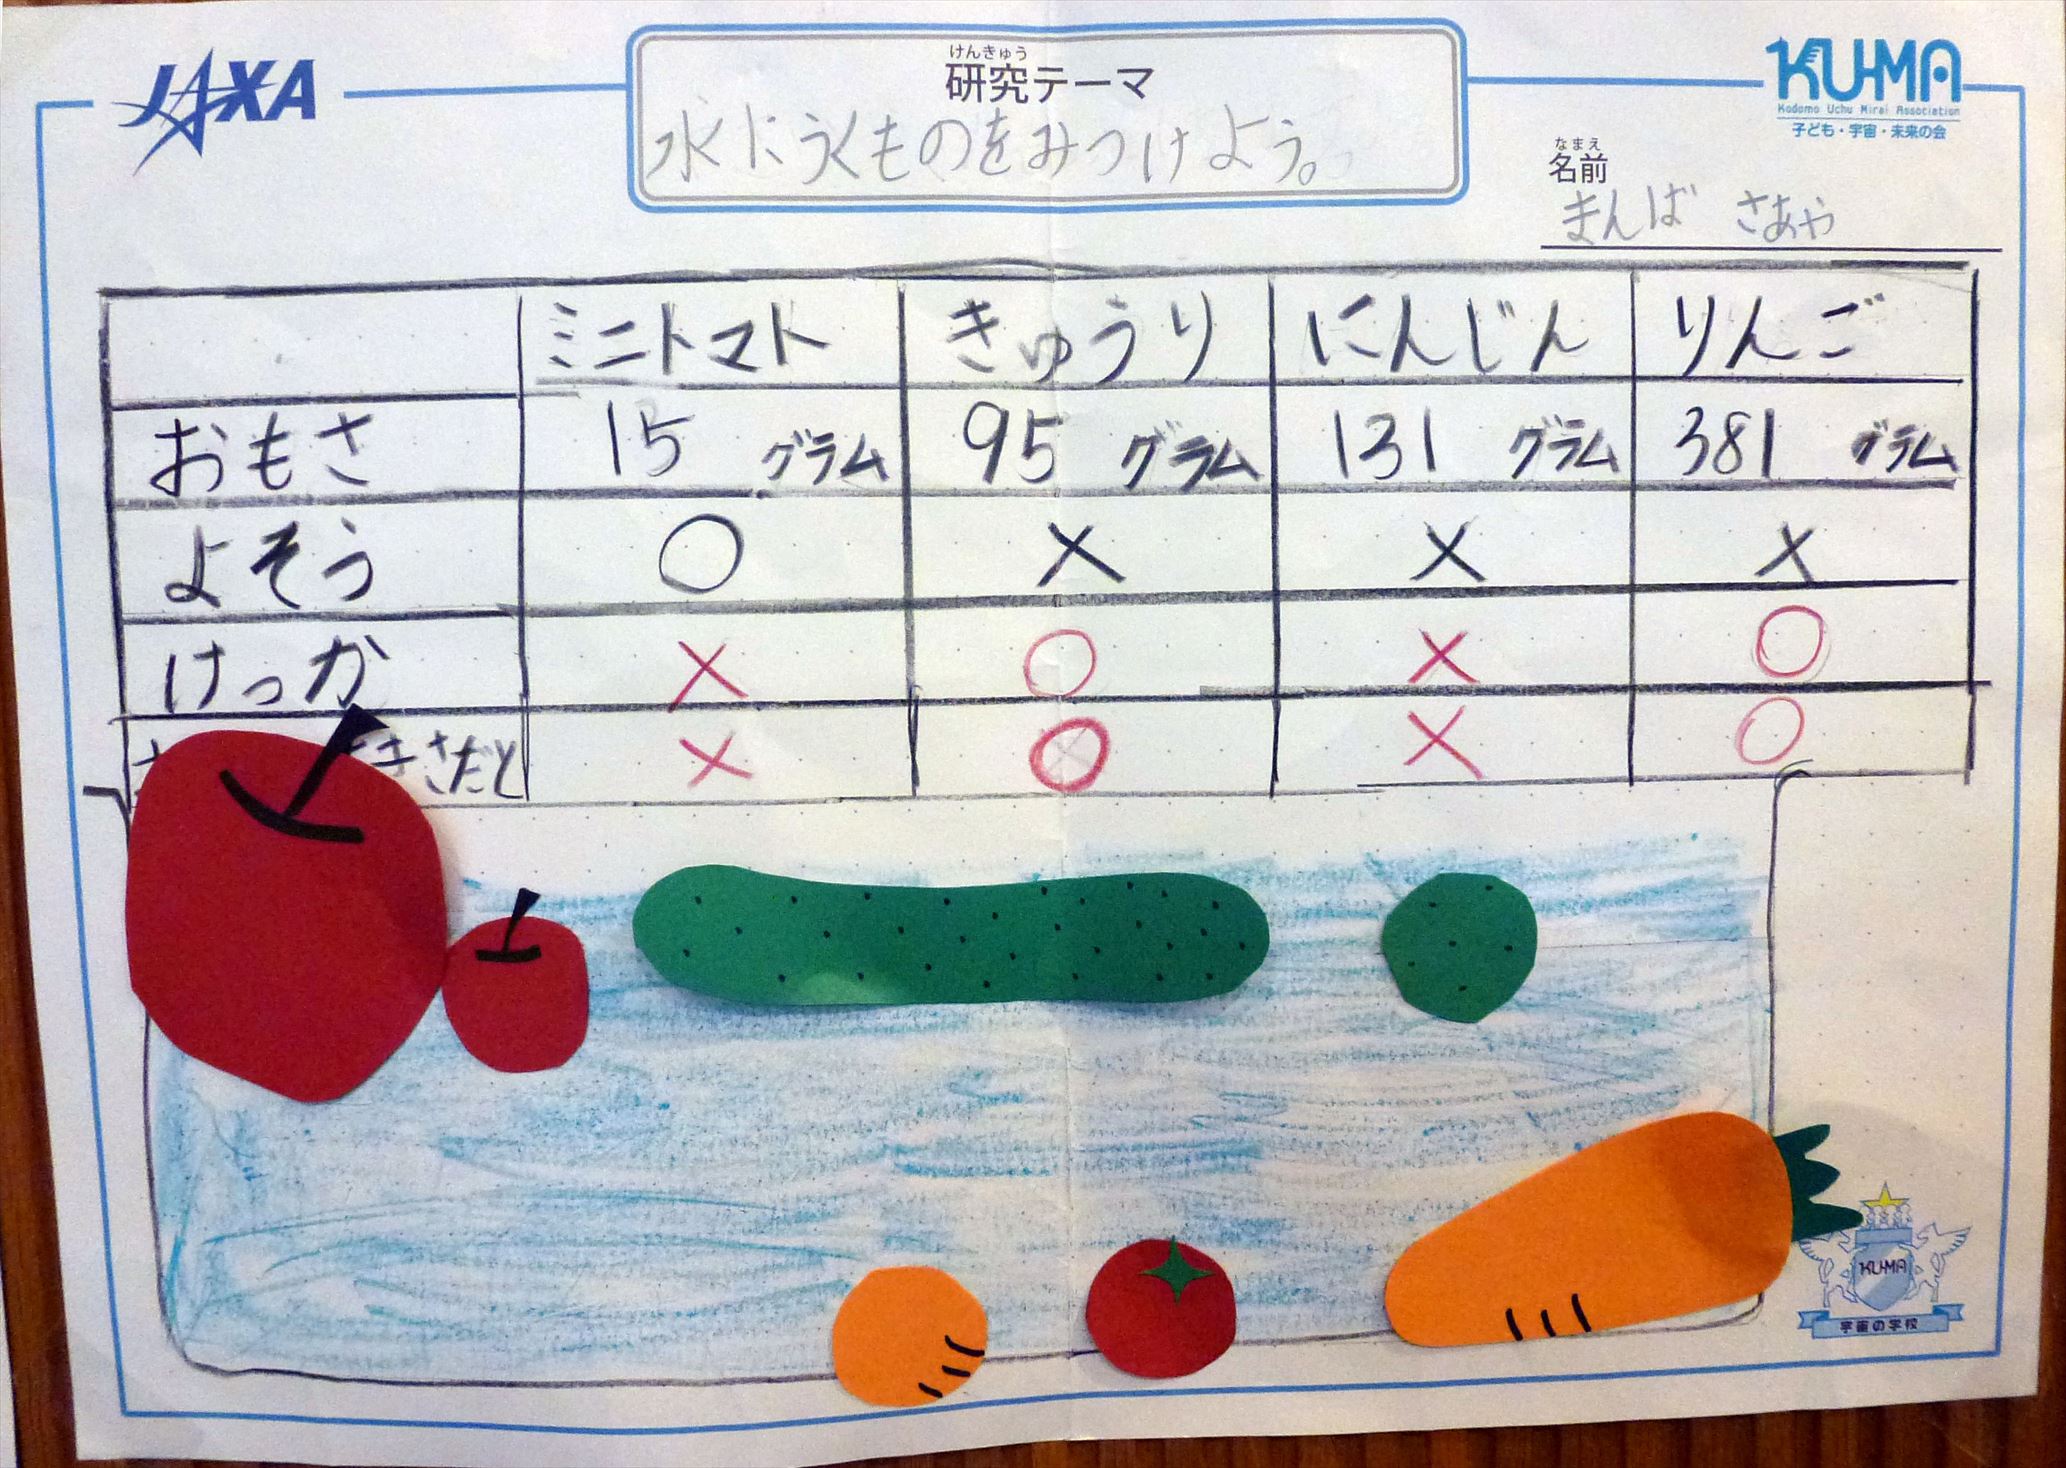 JAXA
けんきゅう
研究テーマ
水にうくものをみつけよう。
KU-MA
Kodomo Uchu Mirai Association
子ども・宇宙・未来の会
なまえ
名前
まんば さあや
ミニトマト きゅうり にんじん りんご
おもさ 15 グラム 95 グラム 131 グラム 381 グラム
よそう ○ × × ×
けっか × ○ × ○
きさだと × ○ × ○
KU-MA
宇宙の学校